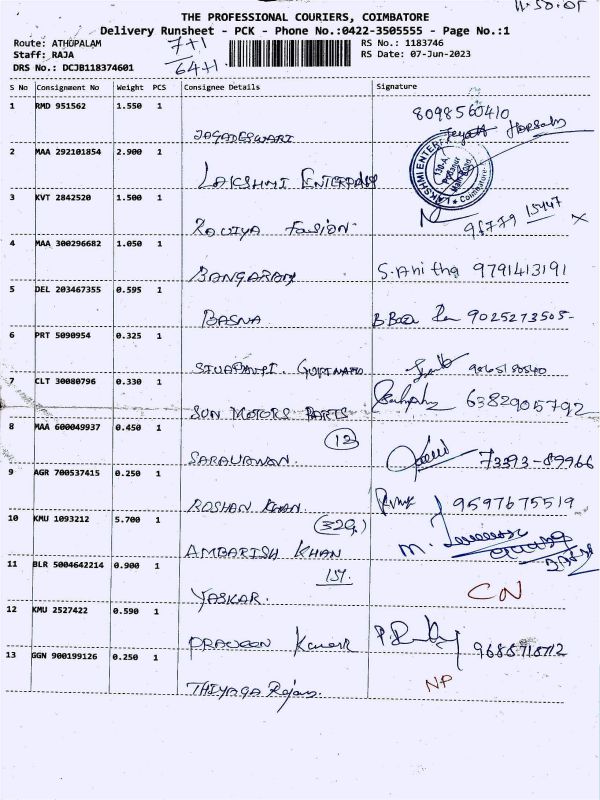 11.50.05
THE PROFESSIONAL COURIERS, COIMBATORE
Delivery Runsheet - PCK - Phone No.:0422-3505555 - Page No.:1
Route: ATHOPALAM 7+1 RS No.: 1183746
Staff: RAJA 64+1 RS Date: 07-Jun-2023
DRS No.: DCJB118374601
S No Consignment No Weight PCS Consignee Details Signature
1 RMD 951562 1.550 1 JAGADESWARI 8098560410
2 MAA 292101854 2.900 1 LAKSHMI ENTERPRISES LAKSHMI ENTERPRISES 130-A Main Road Coimbatore
3 KVT 2842520 1.500 1 KAVIYA FASION 96779 15447 X
4 MAA 300296682 1.050 1 BANGARAM S.Anitha 9791413191
5 DEL 203467355 0.595 1 BASNA 9025273505
6 PRT 5090954 0.325 1
7 CLT 30080796 0.330 1 SUN MOTORS PARTS 6382905792
8 MAA 600049937 0.450 1 12 SARAVANAN 73393-89966
9 AGR 700537415 0.250 1 ROSHAN KHAN 9597675519
10 KMU 1093212 5.700 1 (329) AMBARISH KHAN M.
11 BLR 5004642214 0.900 1 157. YASKAR. CN
12 KMU 2527422 0.590 1 PRAVEEN Kumar 9688718712
13 GGN 900199126 0.250 1 THIYAGA Rajan NP